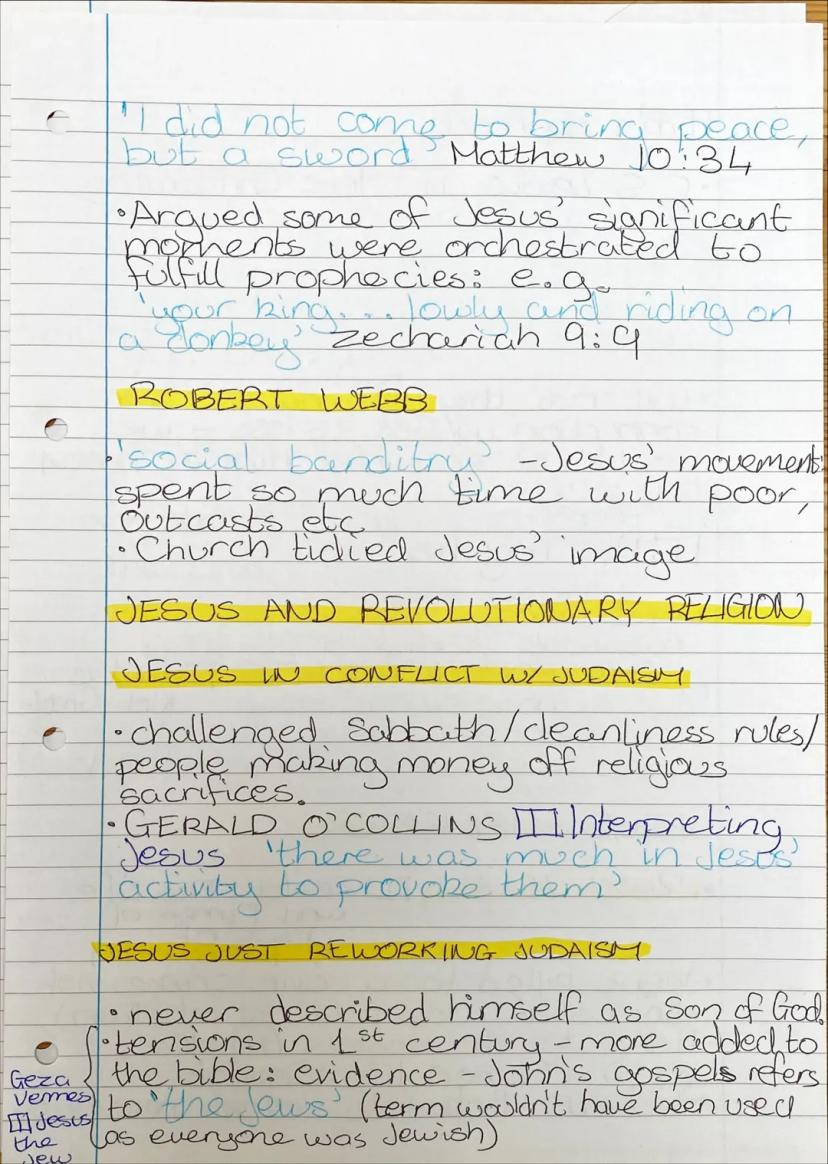 'I did not come to bring peace,
but a sword' Matthew 10:34
• Argued some of Jesus' significant
moments were orchestrated to
fulfill prophecies: e.g.
'your king... lowly and riding on
a donkey' Zechariah 9:9
ROBERT WEBB
• 'social banditry' - Jesus' movement
spent so much time with poor,
outcasts etc
• Church tidied Jesus' image
JESUS AND REVOLUTIONARY RELIGION
JESUS IN CONFLICT W/ JUDAISM
• challenged Sabbath/cleanliness rules/
people making money off religious
sacrifices.
• GERALD O'COLLINS Interpreting
Jesus 'there was much in Jesus'
activity to provoke them'
JESUS JUST REWORKING JUDAISM
• never described himself as Son of God.
• tensions in 1st century - more added to
the bible: evidence - John's gospels refers
to 'the Jews' (term wouldn't have been used
as everyone was Jewish)
Geza
Vermes
Jesus
the
Jew